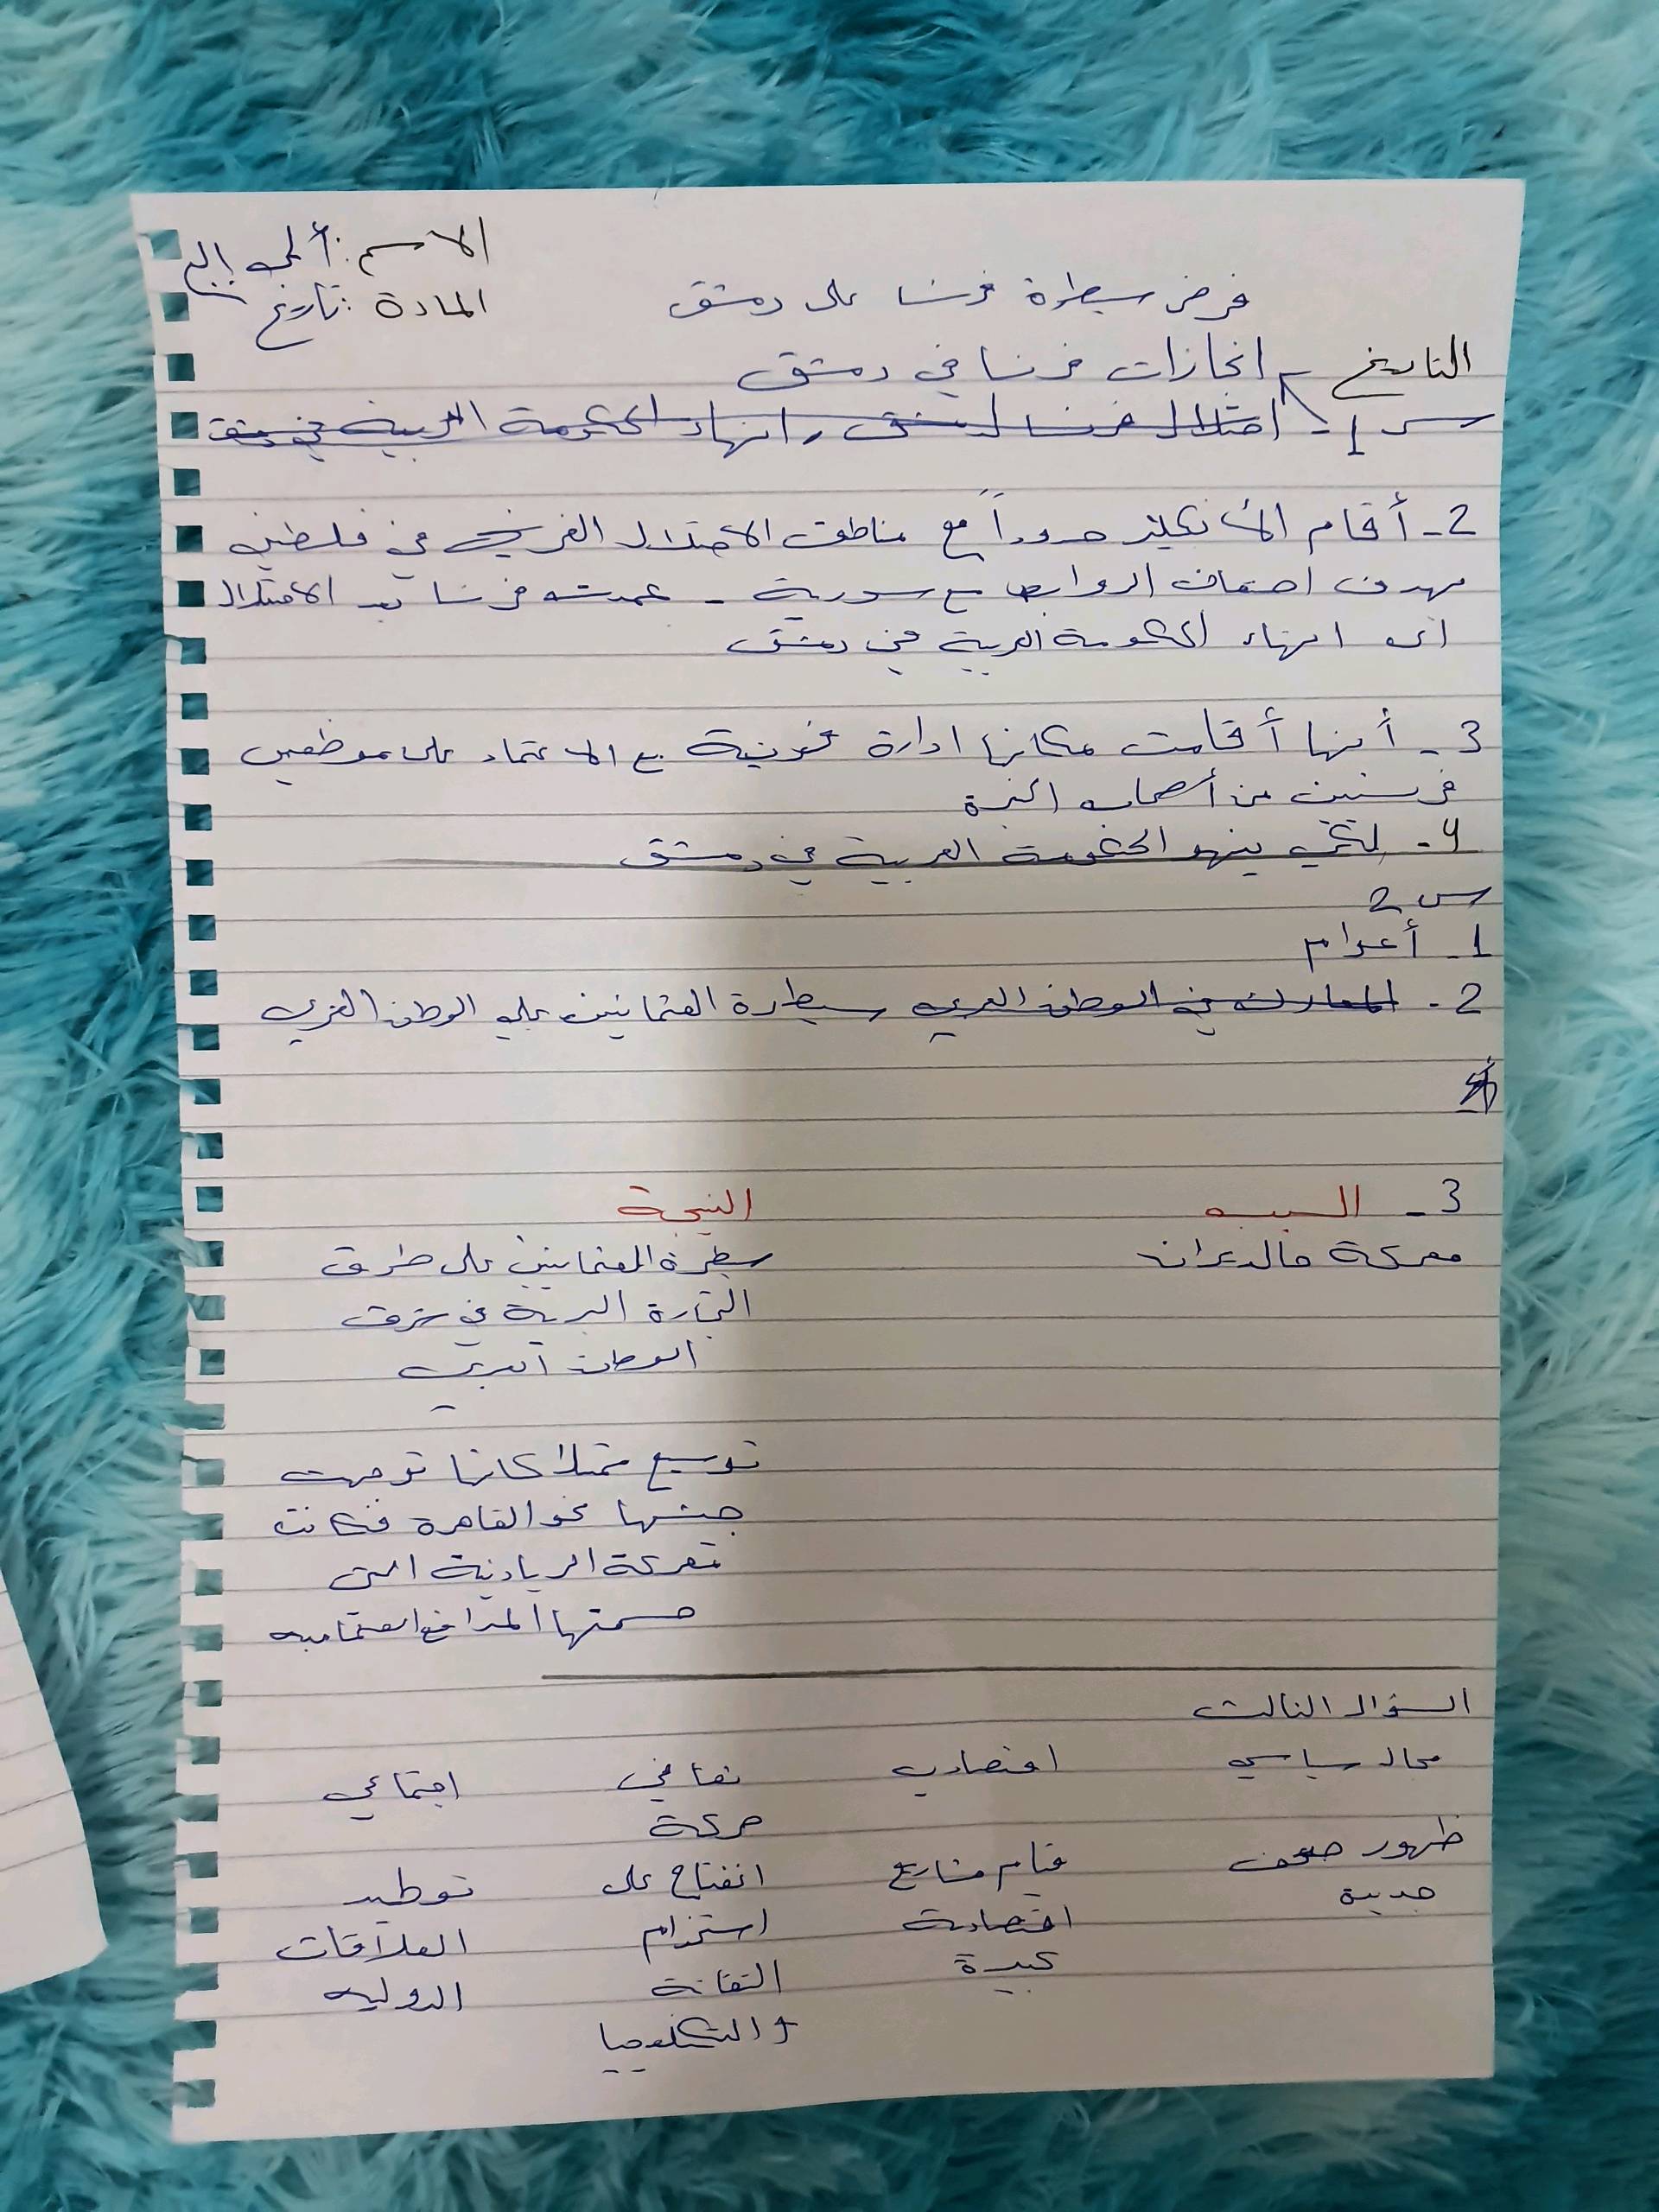 الاسم: ألمى
المادة: تاريخ
فرض سيطرة فرنسا على دمشق
التاريخ انجازات فرنسا في دمشق
س 1- احتلال فرنسا لدمشق وانهاء الحكومة العربية في دمشق
2- أقام الأنكليز حدوداً مع مناطق الاحتلال الفرنسي في فلسطين
بهدف اضعاف الروابط مع سورية - عمدت فرنسا بعد الاحتلال
الى انهاء الحكومة العربية في دمشق
3- أنها أقامت مكانها ادارة مع الاعتماد على موظفين
فرنسيين من أصحاب الخبرة
4- لكي ينهو الحكومة العربية في دمشق
س 2
1- أعدام
2- المعارك في الوطن العربي سيطرة العثمانيين على الوطن العربي
3- السبب
النتيجة
معركة جالديران
سيطرة العثمانيين على طرق
التجارة البرية في شرق
الوطن العربي
توسيع ممتلاكاتها توجهت
جيشها نحو القاهرة فكانت
معركة الريادنية التي
حسمتها المدافع العثمانيه
السؤال الثالث
مجال سياسي
اقتصادي
ثقافي
اجتماعي
حركة
ظهور صحف
جديدة
قيام مشاريع
اقتصادية
كبيرة
انفتاح على
استخدام
التقانة
والتكنلوجيا
توطيد
العلاقات
الدوليه